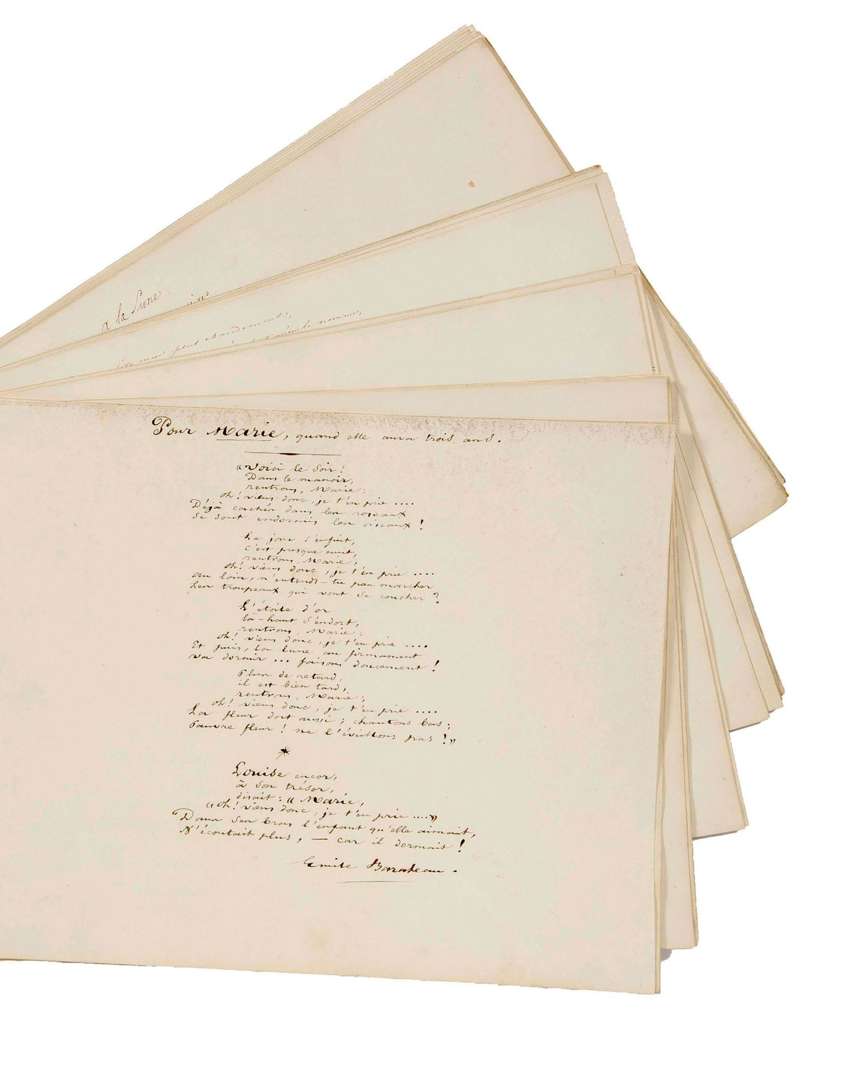 a la Lune
Pour Marie, quand elle aura trois ans.
« Voici le soir!
Dans le manoir,
rentrons, Marie:
oh! viens donc, je t'en prie ....
Déjà cachés dans les roseaux
Se sont endormis les oiseaux!
Le jour s'enfuit,
c'est presque nuit,
rentrons Marie;
oh! viens donc, je t'en prie ....
au loin, n'entends-tu pas marcher
les troupeaux qui vont se coucher?
L'étoile d'or
là-haut s'endort,
rentrons, Marie:
oh! viens donc, je t'en prie ....
Et puis, la lune au firmament
va dormir ... faisons doucement!
Plus de retard,
il est bien tard,
rentrons, Marie;
oh! viens donc, je t'en prie ....
La fleur dort aussi; chantons bas:
Pauvre fleur! ne l'éveillons pas!»
*
Louise encor,
à son trésor,
disait: « Marie,
oh! viens donc, je t'en prie ....»
Dans ses bras l'enfant qu'elle aimait,
N'écoutait plus, — car il dormait!
Emile Barateau.